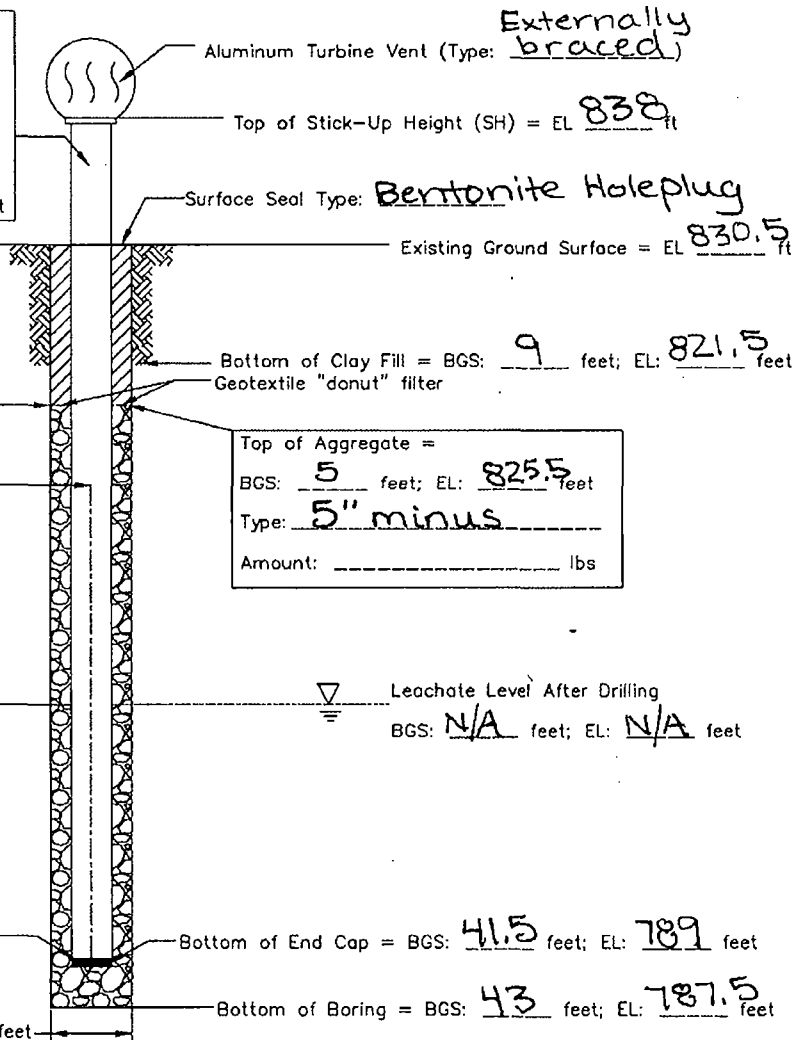 Externally
Aluminum Turbine Vent (Type: braced)
Top of Stick-Up Height (SH) = EL 838 ft
t
Surface Seal Type: Bentonite Holeplug
Existing Ground Surface = EL 830.5 ft
Bottom of Clay Fill = BGS: 9 feet; EL: 821.5 feet
Geotextile "donut" filter
Top of Aggregate =
BGS: 5 feet; EL: 825.5 feet
Type: 5" minus
Amount: ____ lbs
Leachate Level After Drilling
BGS: N/A feet; EL: N/A feet
Bottom of End Cap = BGS: 41.5 feet; EL: 789 feet
Bottom of Boring = BGS: 43 feet; EL: 787.5 feet
feet